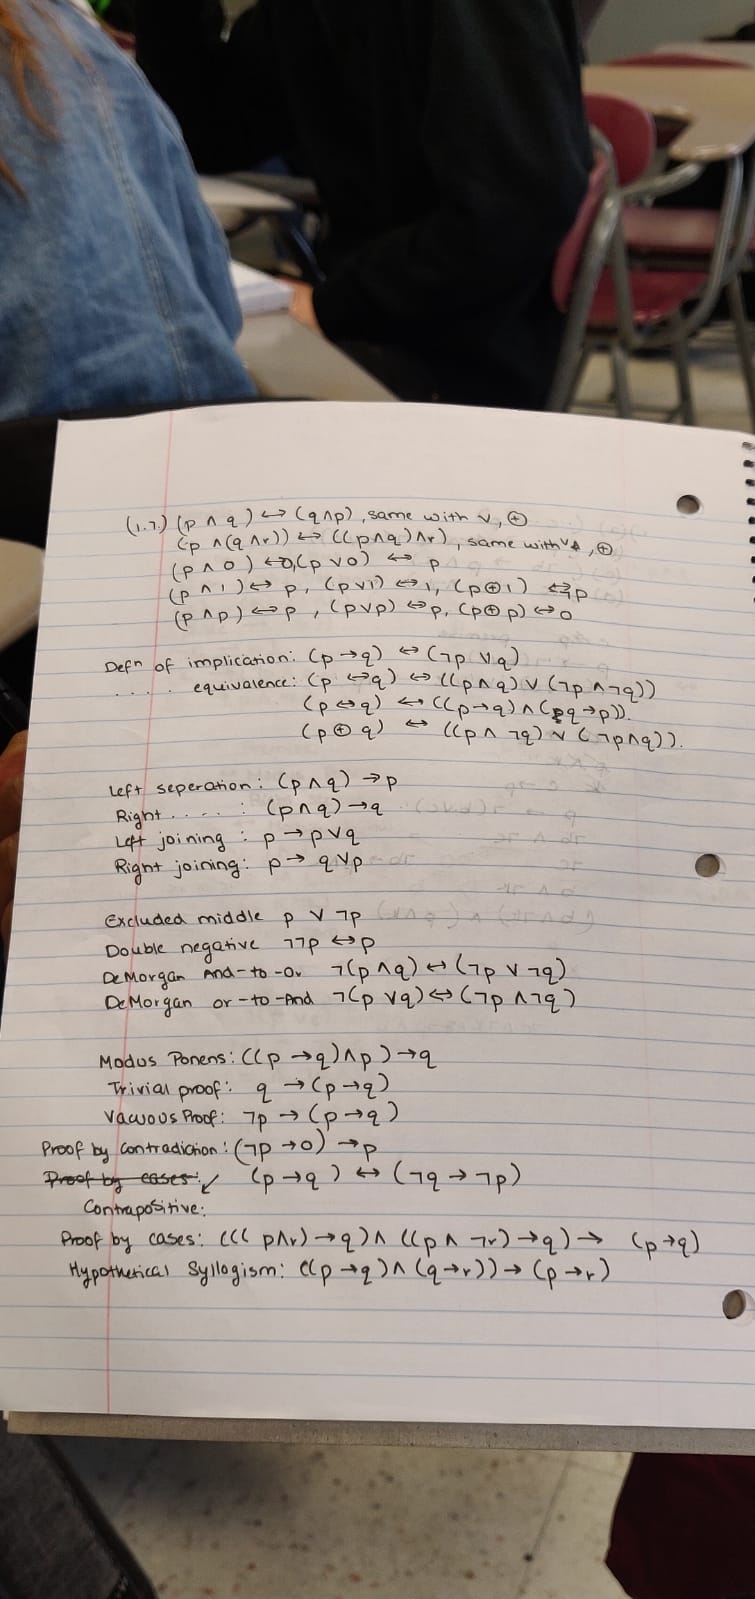 (1.7.) (p ∧ q) ↔ (q∧p), same with ∨, ⊕
(p ∧(q ∧r)) ↔ ((p∧q)∧r), same with ∨, ⊕
(p ∧ 0) ↔0,(p ∨0) ↔ p
(p ∧ 1) ↔ p, (p∨1) ↔1, (p⊕1) ↔¬p
(p ∧p) ↔p , (p∨p) ↔p, (p⊕p) ↔0
Defⁿ of implication: (p →q) ↔ (¬p ∨q)
.... equivalence: (p ↔q) ↔ ((p∧q) ∨ (¬p ∧¬q))
(p ↔q) ↔ ((p→q) ∧ (q→p)).
(p ⊕ q) ↔ ((p∧ ¬q) ∨ (¬p∧q)).
Left seperation: (p∧q) →p
Right ..... : (p∧q) →q
Left joining : p → p∨q
Right joining: p → q∨p
Excluded middle p ∨ ¬p
Double negative ¬¬p ↔p
DeMorgan And-to-Or ¬(p∧q) ↔ (¬p ∨ ¬q)
DeMorgan or-to-And ¬(p ∨q) ↔ (¬p ∧¬q)
Modus Ponens: ((p →q)∧p) →q
Trivial proof: q → (p→q)
Vacuous Proof: ¬p → (p→q)
Proof by Contradiction: (¬p →0) →p
Proof by cases: (p→q) ↔ (¬q → ¬p)
Contrapositive:
Proof by cases: ((( p∧r) →q)∧ ((p∧ ¬r) →q) → (p→q)
Hypothetical Syllogism: ((p →q) ∧ (q→r)) → (p→r)